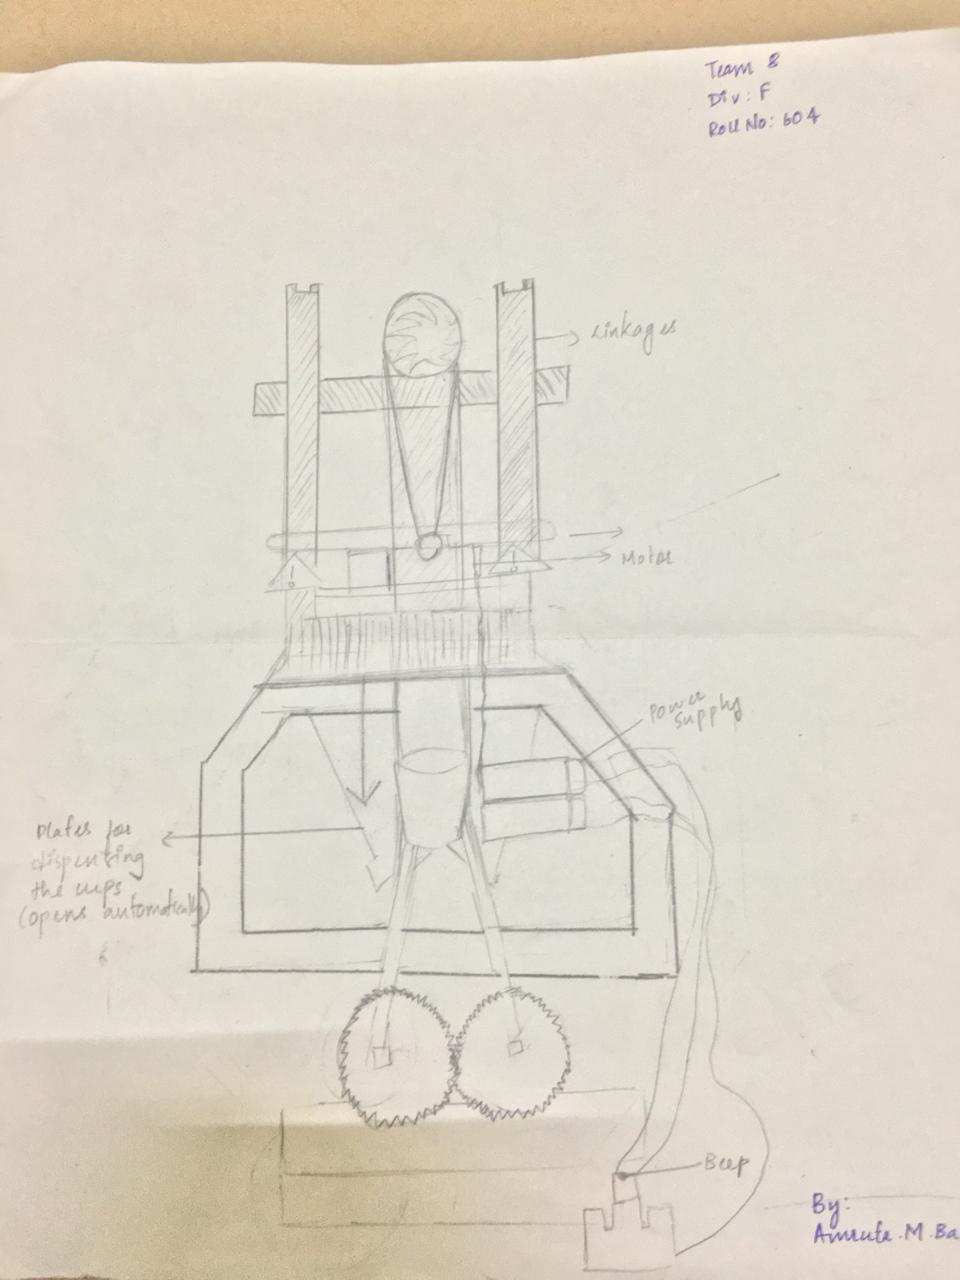 Team 8
Div: F
Roll No: 604
Linkages
Motor
Power
Supply
Plates for
dispensing
the cups
(opens automatically)
Beep
By:
Amruta.M.Ba